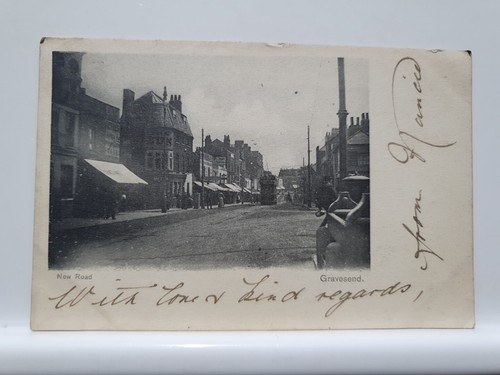 New Road
Gravesend.
With love & kind regards,
from Nancie